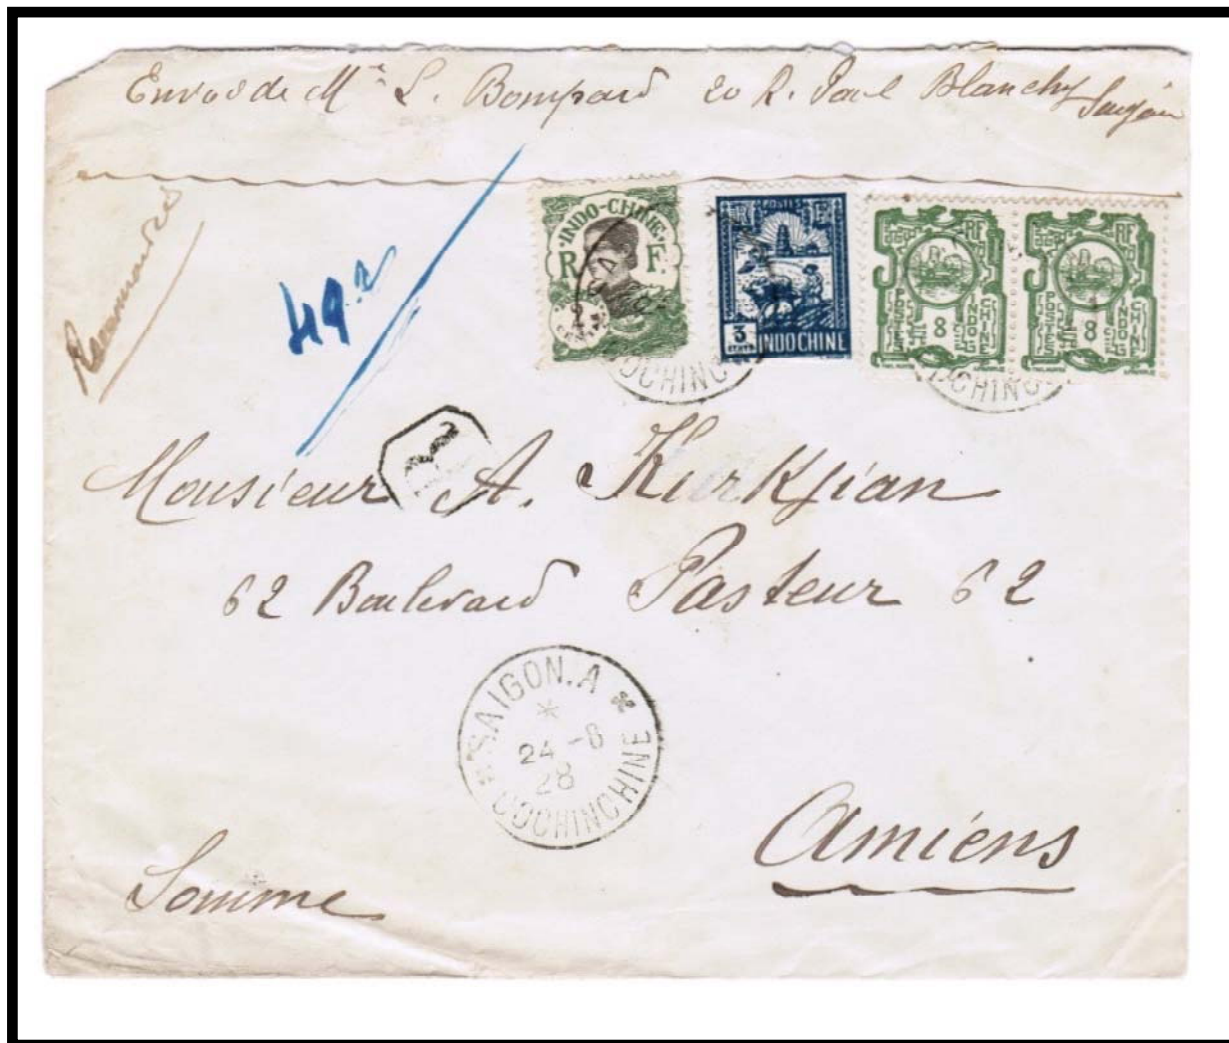 Envoi de Mme L. Bompard 20 R. Paul Blanchy Saigon
Recommandé
49.2
INDO-CHINE
R F.
2
CENTS
POSTES
RF
3
CENTS
INDOCHINE
RF
POSTES
INDO
CHINE
8
RF
POSTES
INDO
CHINE
8
OCHINC
CHINC
R
Monsieur A. Kurkjian
62 Boulevard Pasteur 62
SAIGON.A
24 -8
28
COCHINCHINE
Amiens
Somme